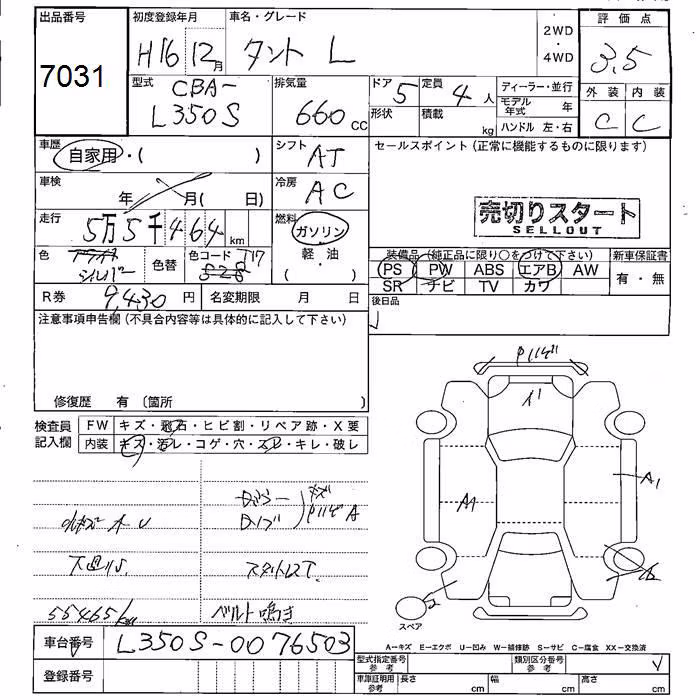 出品番号 初度登録年月 車名・グレード 2WD 評価点
7031 H16 12月 タント L ・ 3.5
4WD
型式 CBA- 排気量 ドア 5 定員 4人 ディーラー・並行 外装 内装
L350S 660cc 形状 積載 kg モデル年式 年 C C
ハンドル 左・右
車歴 自家用・( ) シフト AT セールスポイント(正常に機能するものに限ります)
車検 年 月( 日) 冷房 AC
売切りスタート
SELLOUT
走行 5万5千464km 燃料 ガソリン
軽・油
色 シルバー 色替 色コード T17 S28
装備品(純正品に限り○をつけて下さい) 新車保証書
PS PW ABS エアB AW 有・無
SR ナビ TV カワ
R券 9,430円 名変期限 月 日 後日品
注意事項申告欄(不具合内容等は具体的に記入して下さい)
修復歴 有 (箇所
検査員記入欄 FW キズ・飛石・ヒビ割・リペア跡・X要
内装 キズ・汚レ・コゲ・穴・スレ・キレ・破レ
A1
スペア
下廻りS
55465km
ベルト鳴き
A-キズ E-エクボ U-凹み W-補修跡 S-サビ C-腐食 XX-交換済
車台番号 L350S-0076503
型式指定番号 参考 類別区分番号 参考
登録番号
車庫証明用 参考 長さ cm 幅 cm 高さ cm